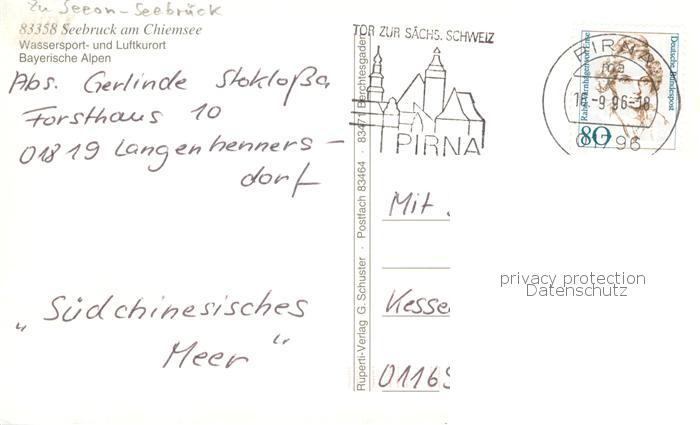 zu Seeon-Seebrück
83358 Seebruck am Chiemsee
Wassersport- und Luftkurort
Bayerische Alpen
Abs. Gerlinde Stokloßa
Forsthaus 10
01819 Langenhenners-
dorf
„Südchinesisches
Meer“
Ruperti-Verlag G. Schuster · Postfach 83464 · 83471 Berchtesgaden
TOR ZUR SÄCHS. SCHWEIZ
PIRNA
PIRNA
ma
-9 96-18
01796
Deutsche Bundespost
Rahel Varnhagen von Ense
80
Mit
Kesse
0116
privacy protection
Datenschutz